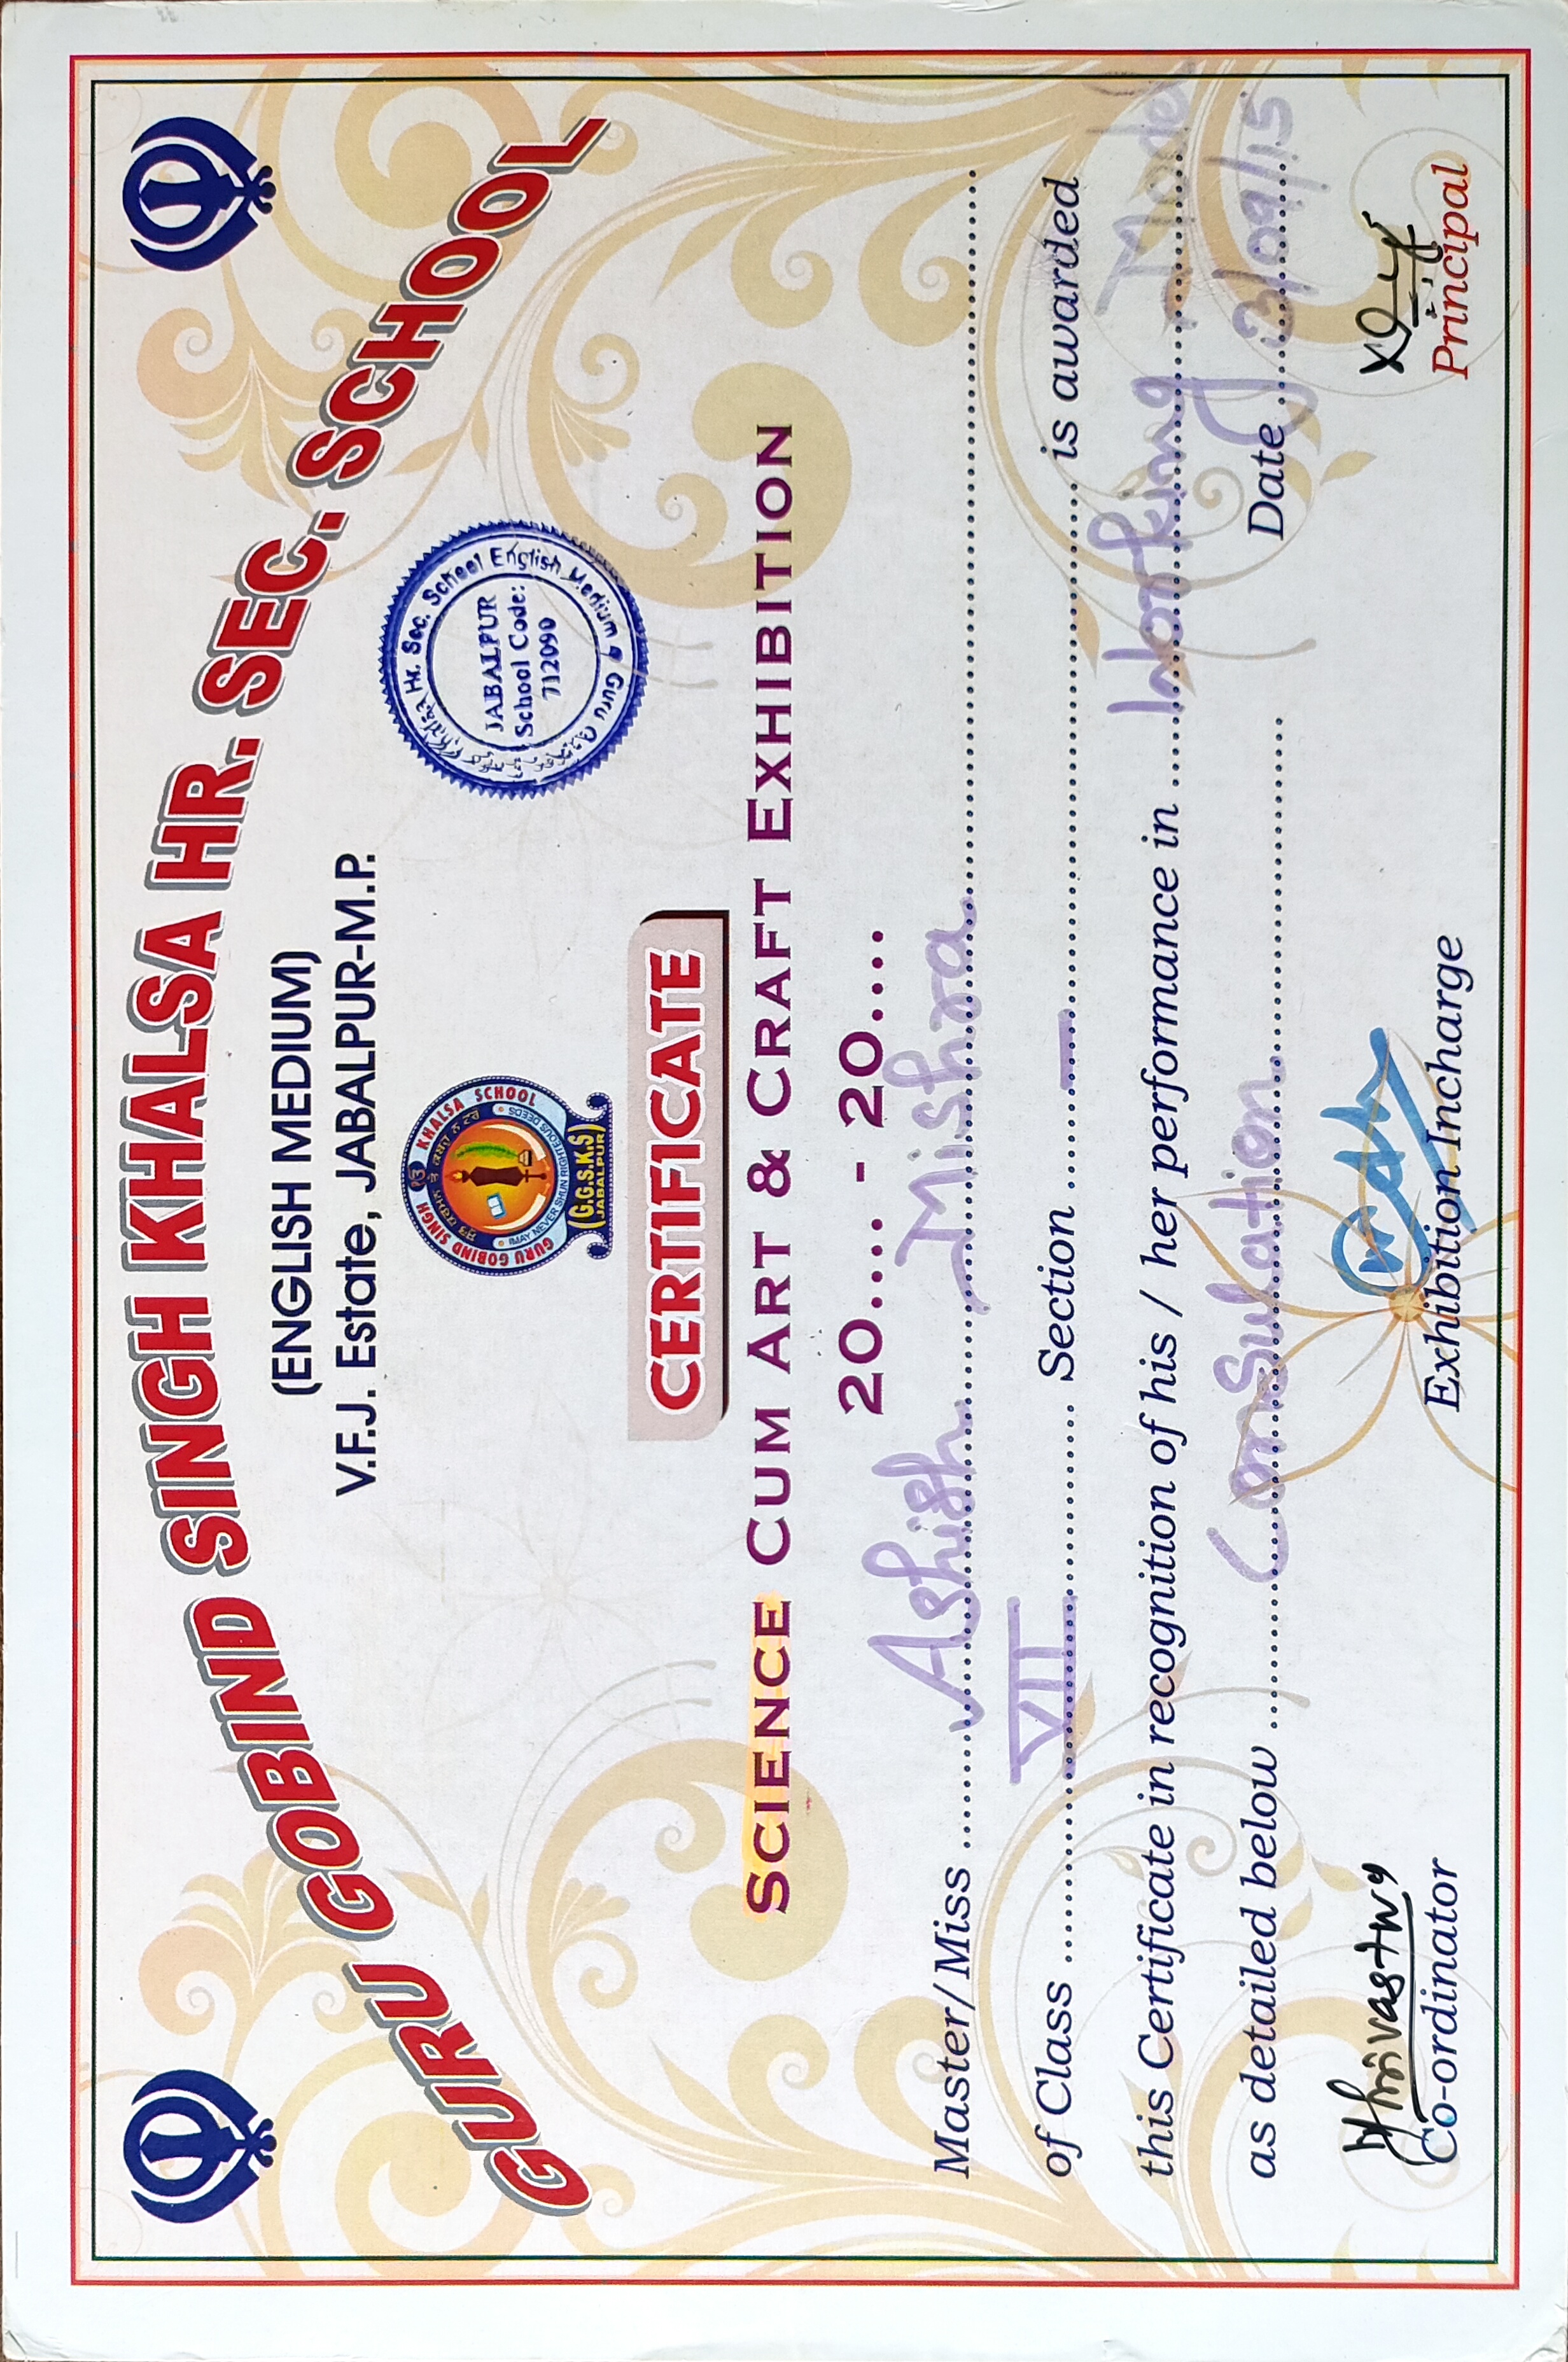 GURU GOBIND SINGH KHALSA HR. SEC. SCHOOL
(ENGLISH MEDIUM)
V.F.J. Estate, JABALPUR-M.P.
GURU GOBIND SINGH KHALSA SCHOOL
I MAY NEVER SHUN RIGHTEOUS DEEDS
G.G.S.K.S
JABALPUR
Khalsa Hr. Sec. School English Medium
Guru
JABALPUR
School Code:
712090
CERTIFICATE
SCIENCE CUM ART & CRAFT EXHIBITION
20.... - 20....
Master/Miss Ashish Mishra
of Class VII Section — is awarded
this Certificate in recognition of his / her performance in Working Model
as detailed below Consulation Date 3/09/15
Co-ordinator Exhibition Incharge Principal